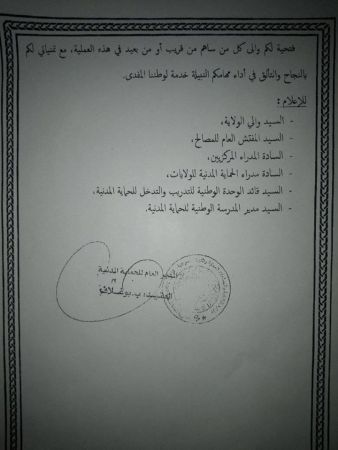 فتحية لكم والى كل من ساهم من قريب أو من بعيد في هذه العملية، مع تمنياتي لكم
بالنجاح والتألق في أداء مهامكم النبيلة خدمة لوطننا المفدى.
للإعلام :
- السيد والي الولاية،
- السيد المفتش العام للمصالح،
- السادة المدراء المركزيين،
- السادة مدراء الحماية المدنية للولايات،
- السيد قائد الوحدة الوطنية للتدريب والتدخل للحماية المدنية،
- السيد مدير المدرسة الوطنية للحماية المدنية.
المدير العام للحماية المدنية
العقيد: ب. بوغلاف